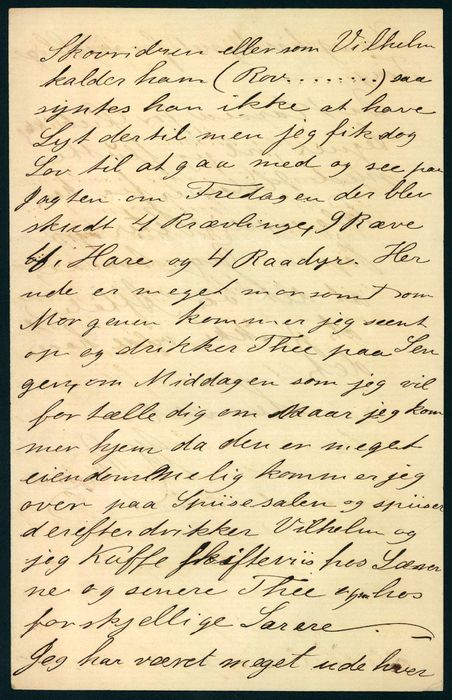 Skovridren eller som Vilhelm
kalder ham (Rov........) saa
syntes han ikke at have
Lyst dertil men jeg fik dog
Lov til at gaa med og see paa
Jagten om Fredagen der blev
skudt 4 Krævlinge, 9 Ræve
1, Hare og 4 Raadyr. Her
ude er meget morsomt om
Morgenen kommer jeg seent
op og drikker Thee paa Sen
gen, om Middagen som jeg vil
fortælle dig om naar jeg kom
mer hjem da den er meget
eiendommelig kommer jeg
over paa Spiisesalen og spiiser
derefter drikker Vilhelm og
jeg Kaffe skifteviis hos Lærer
ne og senere Thee ogsaa hos
forskjellige Lærere
Jeg har været meget ude hver